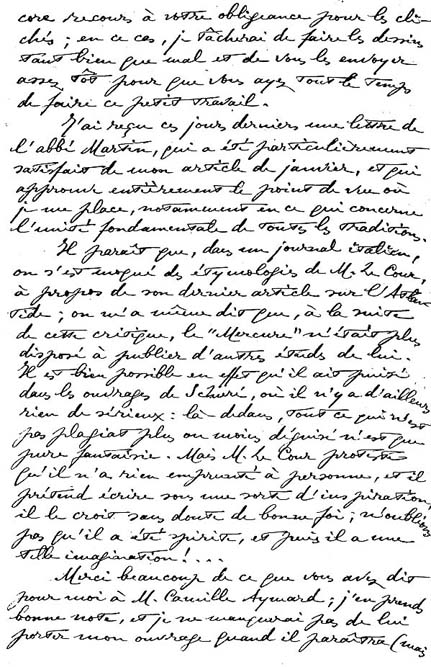 core recours à votre obligeance pour les cli-
chés ; en ce cas, je tâcherai de faire les dessins
tant bien que mal et de vous les envoyer
assez tôt pour que vous ayez tout le temps
de faire ce petit travail.
J'ai reçu ces jours derniers une lettre de
l'abbé Martin, qui a été particulièrement
satisfait de mon article de janvier, et qui
approuve entièrement le point de vue où
je me place, notamment en ce qui concerne
l'unité fondamentale de toutes les traditions.
Il paraît que, dans un journal italien,
on s'est moqué des étymologies de M. Le Cour,
à propos de son dernier article sur l'Atlan-
tide ; on m'a même dit que, à la suite
de cette critique, le "Mercure" n'était plus
disposé à publier d'autres études de lui.
Il est bien possible en effet qu'il ait puisé
dans les ouvrages de Schuré, où il n'y a d'ailleurs
rien de sérieux : là-dedans, tout ce qui n'est
pas plagiat plus ou moins déguisé n'est que
pure fantaisie. Mais M. Le Cour proteste
qu'il n'a rien emprunté à personne, et il
prétend écrire sous une sorte d'inspiration ;
il le croit sans doute de bonne foi ; n'oublions
pas qu'il a été spirite, et puis il a une
telle imagination !...
Merci beaucoup de ce que vous avez dit
pour moi à M. Camille Aymard ; j'en prends
bonne note, et je ne manquerai pas de lui
porter mon ouvrage quand il paraîtra (mais